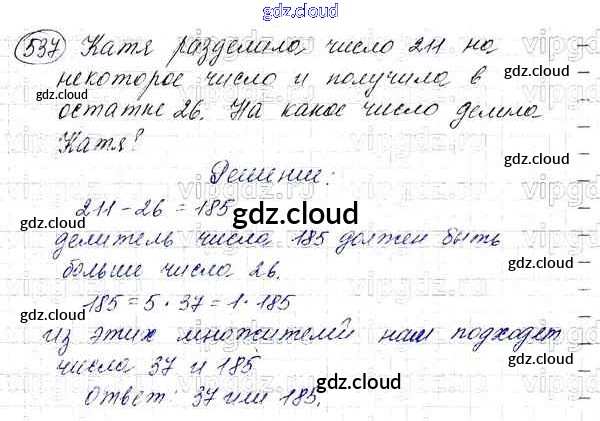 gdz.cloud
537 Катя разделила число 211 на
некоторое число и получила в
остатке 26. На какое число делила
Катя?
Решение:
211 - 26 = 185
делитель числа 185 должен быть
больше числа 26.
185 = 5 · 37 = 1 · 185
из этих множителей нам подходят
числа 37 и 185
Ответ: 37 или 185.
gdz.cloud
gdz.cloud
gdz.cloud
gdz.cloud
gdz.cloud
gdz.cloud
gdz.cloud
gdz.cloud
gdz.cloud